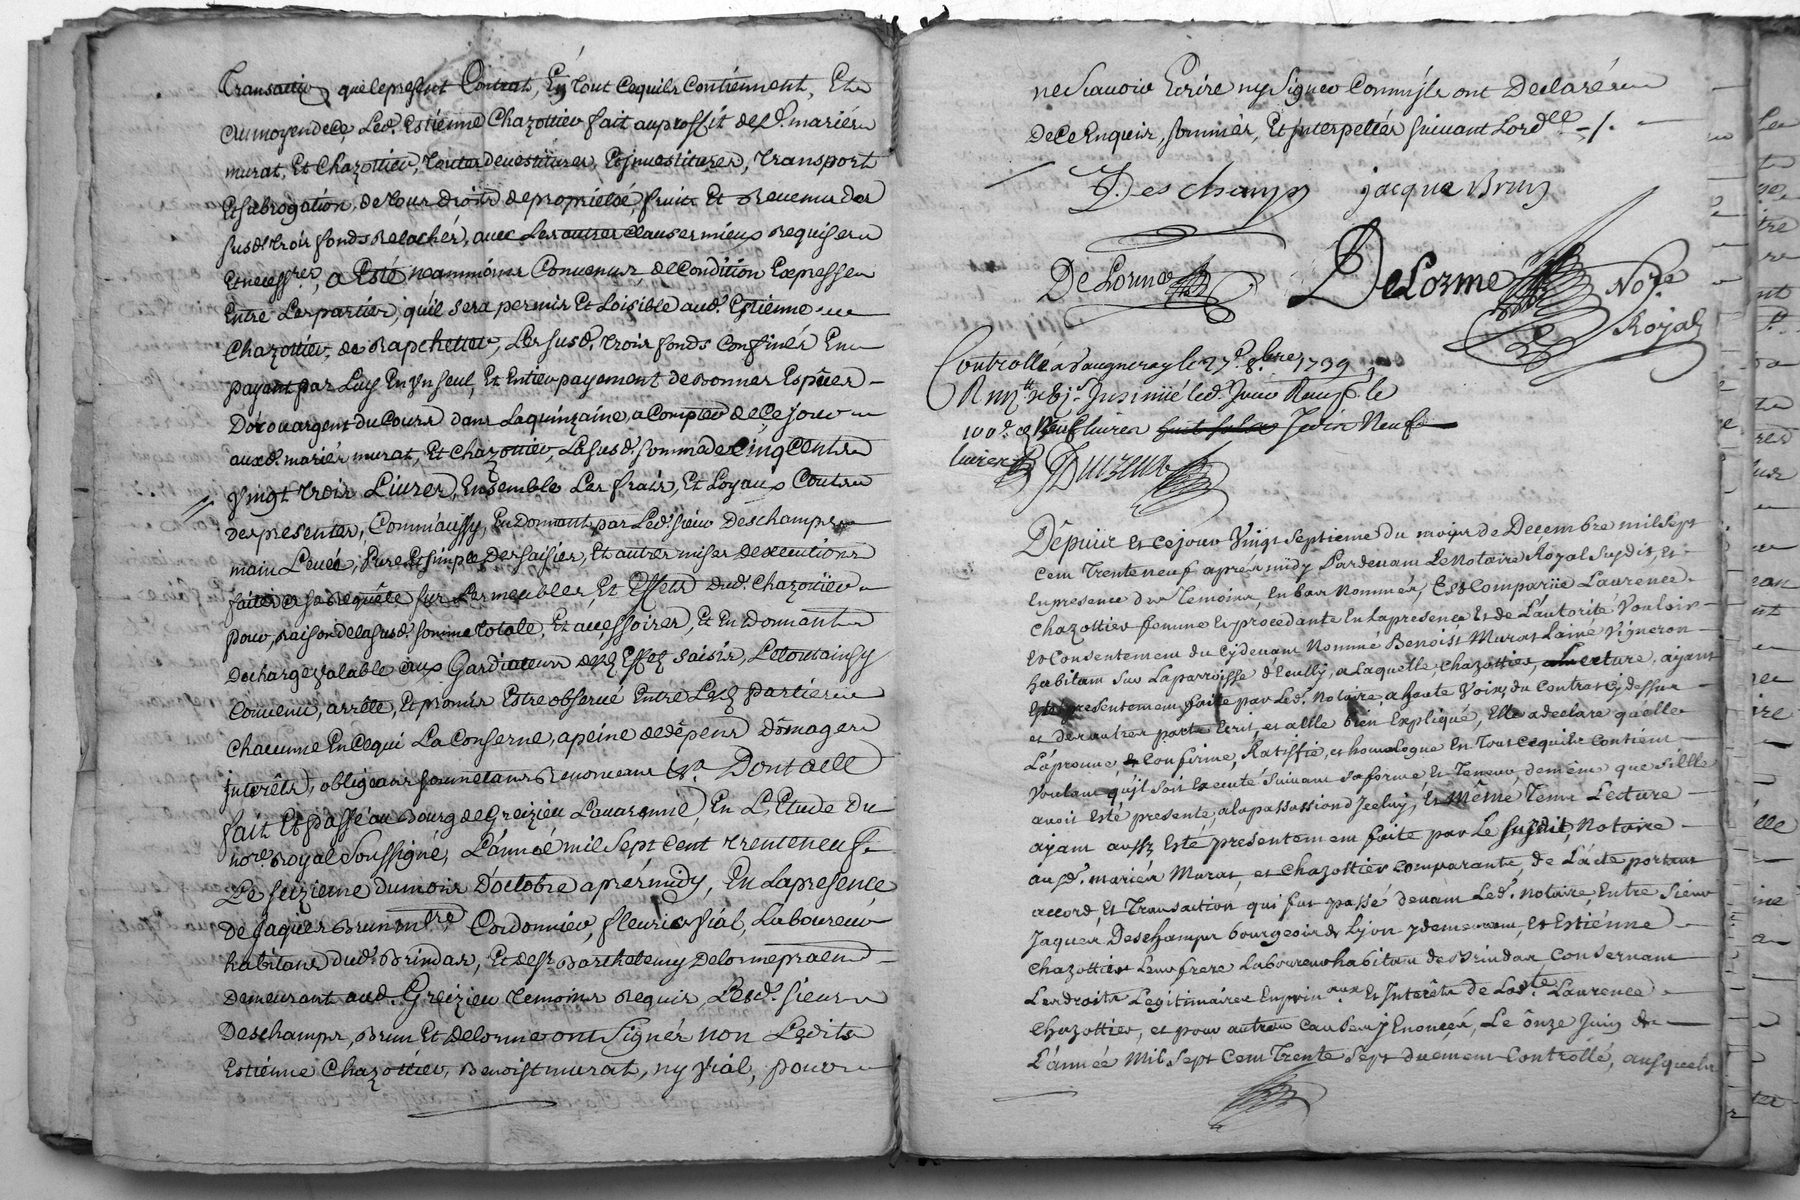 Transaction, que le present Contrat, En tout ce quils Contiennent, Et
Au moyen de ce, Led. Estienne Chazottier fait au proffit desd. mariés
murat, Et Chazottier, toutes devestitures, Et Investitures, transport
Et subrogation, de tous droits de proprieté, fruits Et Revenus des
susd. trois fonds Relachés, avec Les autres Clauses mieux Requises
Et necessres, a Esté neammoins Convenus, de Condition Expresse
Entre Les parties, qu'il sera permis Et Loisible aud. Estienne
Chazottier, de Rapchetter, Les susd. trois fonds Confinés En
payant par Luy En Un seul, Et Entier payement de Bonnes Especes
D'or ou argent du Cours dans La quinzaine, a Compter de Ce jour
auxd. mariés murat, Et Chazottier, La susd. somme de Cinq Cents
Vingt trois Livres, Ensemble Les frais, Et Loyaux Couts
des presentes, Comm'aussy, En Donnant par Led. sieur Deschamps
main Levée, Pure Et simple Des saisies, Et autres mises D'executions
faites a sa Requête sur Les meubles, Et Effets dud. Chazottier
pour, raison de la susd. somme totale, Et accessoires, Et En Donnant
Decharge valable aux Gardiateurs desd Effets saisis, Le tout ainsy
Convenu, arrêté, Et promis Estre observé Entre Lesd parties
Chacunne En Ce qui La Conserne, a peine de dépens Dômages
jnterêts, obligeans soumettans Renonceans &a. Dont acte
fait Et passé au Bourg de Greizieu Lavarenne, En L'Etude du
nore. Royal Soussigné, L'année mil sept cent trente neuf
Le seizieme du mois D'octobre aprés midy, En La presence
de Jaques Brun mtre Cordonnier, fleurie vial, Laboureur
habitans dud. Brindas, Et de sr Barthelemy Delorme praen
Demeurant aud. Greizieu temoins Requis, Lesd. sieurs
Deschamps, Brun Et Delorme ont Signés non Ledits
Estienne Chazottier, Benoist murat, ny vial, pour
ne Scavoir Ecrire ny Signer Comm'ils ont Declarés
De Ce Enquis, sommés, Et Interpellés suivant Lordce -/.
Deschamps jacque Brun
De Lorme DeLorme Nore
Royal
Controllé a Vaugneray le 27e. 8.bre 1739
Jnsinüé led. Jour le
100e. Neuf livres Neuf
livres
Depuis Et Ce jour Vingt septieme Du mois de Decembre mil sept
Cent Trente neuf apres midy Pardevant Le Notaire Royal susdit, Et
En presence des Temoins, En bas Nommés, Est Comparüe Laurence
Chazottier femme Et procedante En La presence Et de L'autorité Vouloir
Et Consentement du Cydevant Nommé Benoist Murat Lainé Vigneron
habitant sur La parroisse d'Ecully, a Laquelle Chazottier, Lecture, ayant
Esté presentement faite par Led. Notaire, a haute Voix, du Contrat Cy dessus
et des autres parts Ecrit, et a Elle bien Expliqué, Elle a declaré qu'elle
L'aprouve Confirme, Ratiffie, et homologue En Tout Ce quils Contient
Voulant qu'jl soit Executé suivant sa forme Et Teneur, de même que si Elle
avoit Esté presente, a la passassion d'Jceluy, Et Même Tems Lecture
ayant aussy Esté presentement faite par Le susdit, Notaire
aud. mariés Murat, et Chazottier comparante de L'acte portant
accord Et Transaction qui fut passé devant Led. Notaire, Entre Sieur
Jaques Deschamps bourgeois de Lyon y demeurant, Et Estiénne
Chazottier Leur frere Laboureur habitant de Brindas Consernant
Les droits Legitimaires En prinaux Et Interêts de Ladte Laurence
Chazottier, et pour autres Causes y Enoncés, Le ônze Juin de
L'année Mil sept Cent Trente Sept duëment Controllé, ausquels